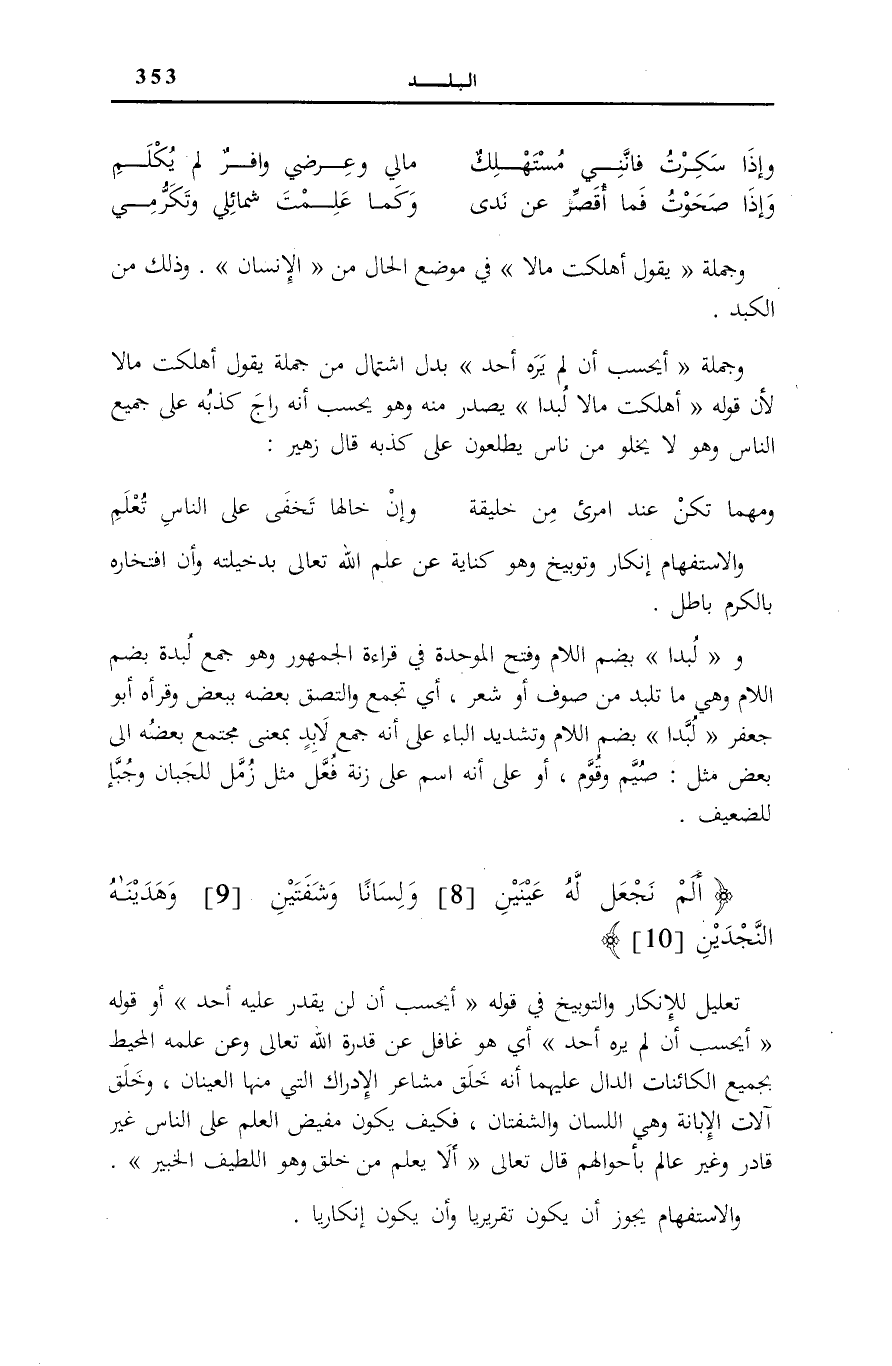 353 البلـــــد
وإذَا سَكِـرْتُ فانَّنِـــي مُسْتَهْـــلِكٌ مالي وعِـــرضي وافـــرٌ لم يُكْلَـــمِ
وَإذَا صَحَوْتُ فَما أُقَصِّر عن نَدى وَكَمـا عَلِـــمْتَ شمائِلي وتَكَرُّمِـــي
وجملة « يقول أهلكت مالا » في موضع الحال من « الإنسان » . وذلك من
الكبد .
وجملة « أيحسب أن لم يَرَه أحد » بدل اشتمال من جملة يقول أهلكت مالا
لأن قوله « أهلكت مالا لُبدا » يصدر منه وهو يحسب أنه راجَ كذبُه على جميع
الناس وهو لا يخلو من ناس يطلعون على كذبه قال زهير :
ومهما تكنْ عند امرئ مِن خليقة وإنْ خالها تَخفَى على الناسِ تُعْلَمِ
والاستفهام إنكار وتوبيخ وهو كناية عن علم الله تعالى بدخيلته وأن افتخاره
بالكرم باطل .
و « لُبدا » بضم اللام وفتح الموحدة في قراءة الجمهور وهو جمع لُبدة بضم
اللام وهي ما تلبد من صوف أو شعر ، أي تجمع والتصق بعضه ببعض وقرأه أبو
جعفر « لُبَّدا » بضم اللام وتشديد الباء على أنه جمع لَابِدٍ بمعنى مجتمع بعضُه الى
بعض مثل : صُيَّم وقُوَّم ، أو على أنه اسم على زنة فُعَّل مثل زُمَّل للجَبان وجُبَّإ
للضعيف .
﴿ أَلَمْ نَجْعَل لَّهُ عَيْنَيْنِ [8] وَلِسَانًا وَشَفَتَيْنِ [9] وَهَدَيْنَـٰهُ
النَّجْدَيْنِ [10] ﴾
تعليل للإنكار والتوبيخ في قوله « أيحسب أن لن يقدر عليه أحد » أو قوله
« أيحسب أن لم يره أحد » أي هو غافل عن قدرة الله تعالى وعن علمه المحيط
بجميع الكائنات الدال عليهما أنه خَلَق مشاعر الإدراك التي منها العينان ، وخَلَق
آلات الإبانة وهي اللسان والشفتان ، فكيف يكون مفيض العلم على الناس غير
قادر وغير عالم بأحوالهم قال تعالى « ألَا يعلم من خلق وهو اللطيف الخبير » .
والاستفهام يجوز أن يكون تقريريا وأن يكون إنكاريا .